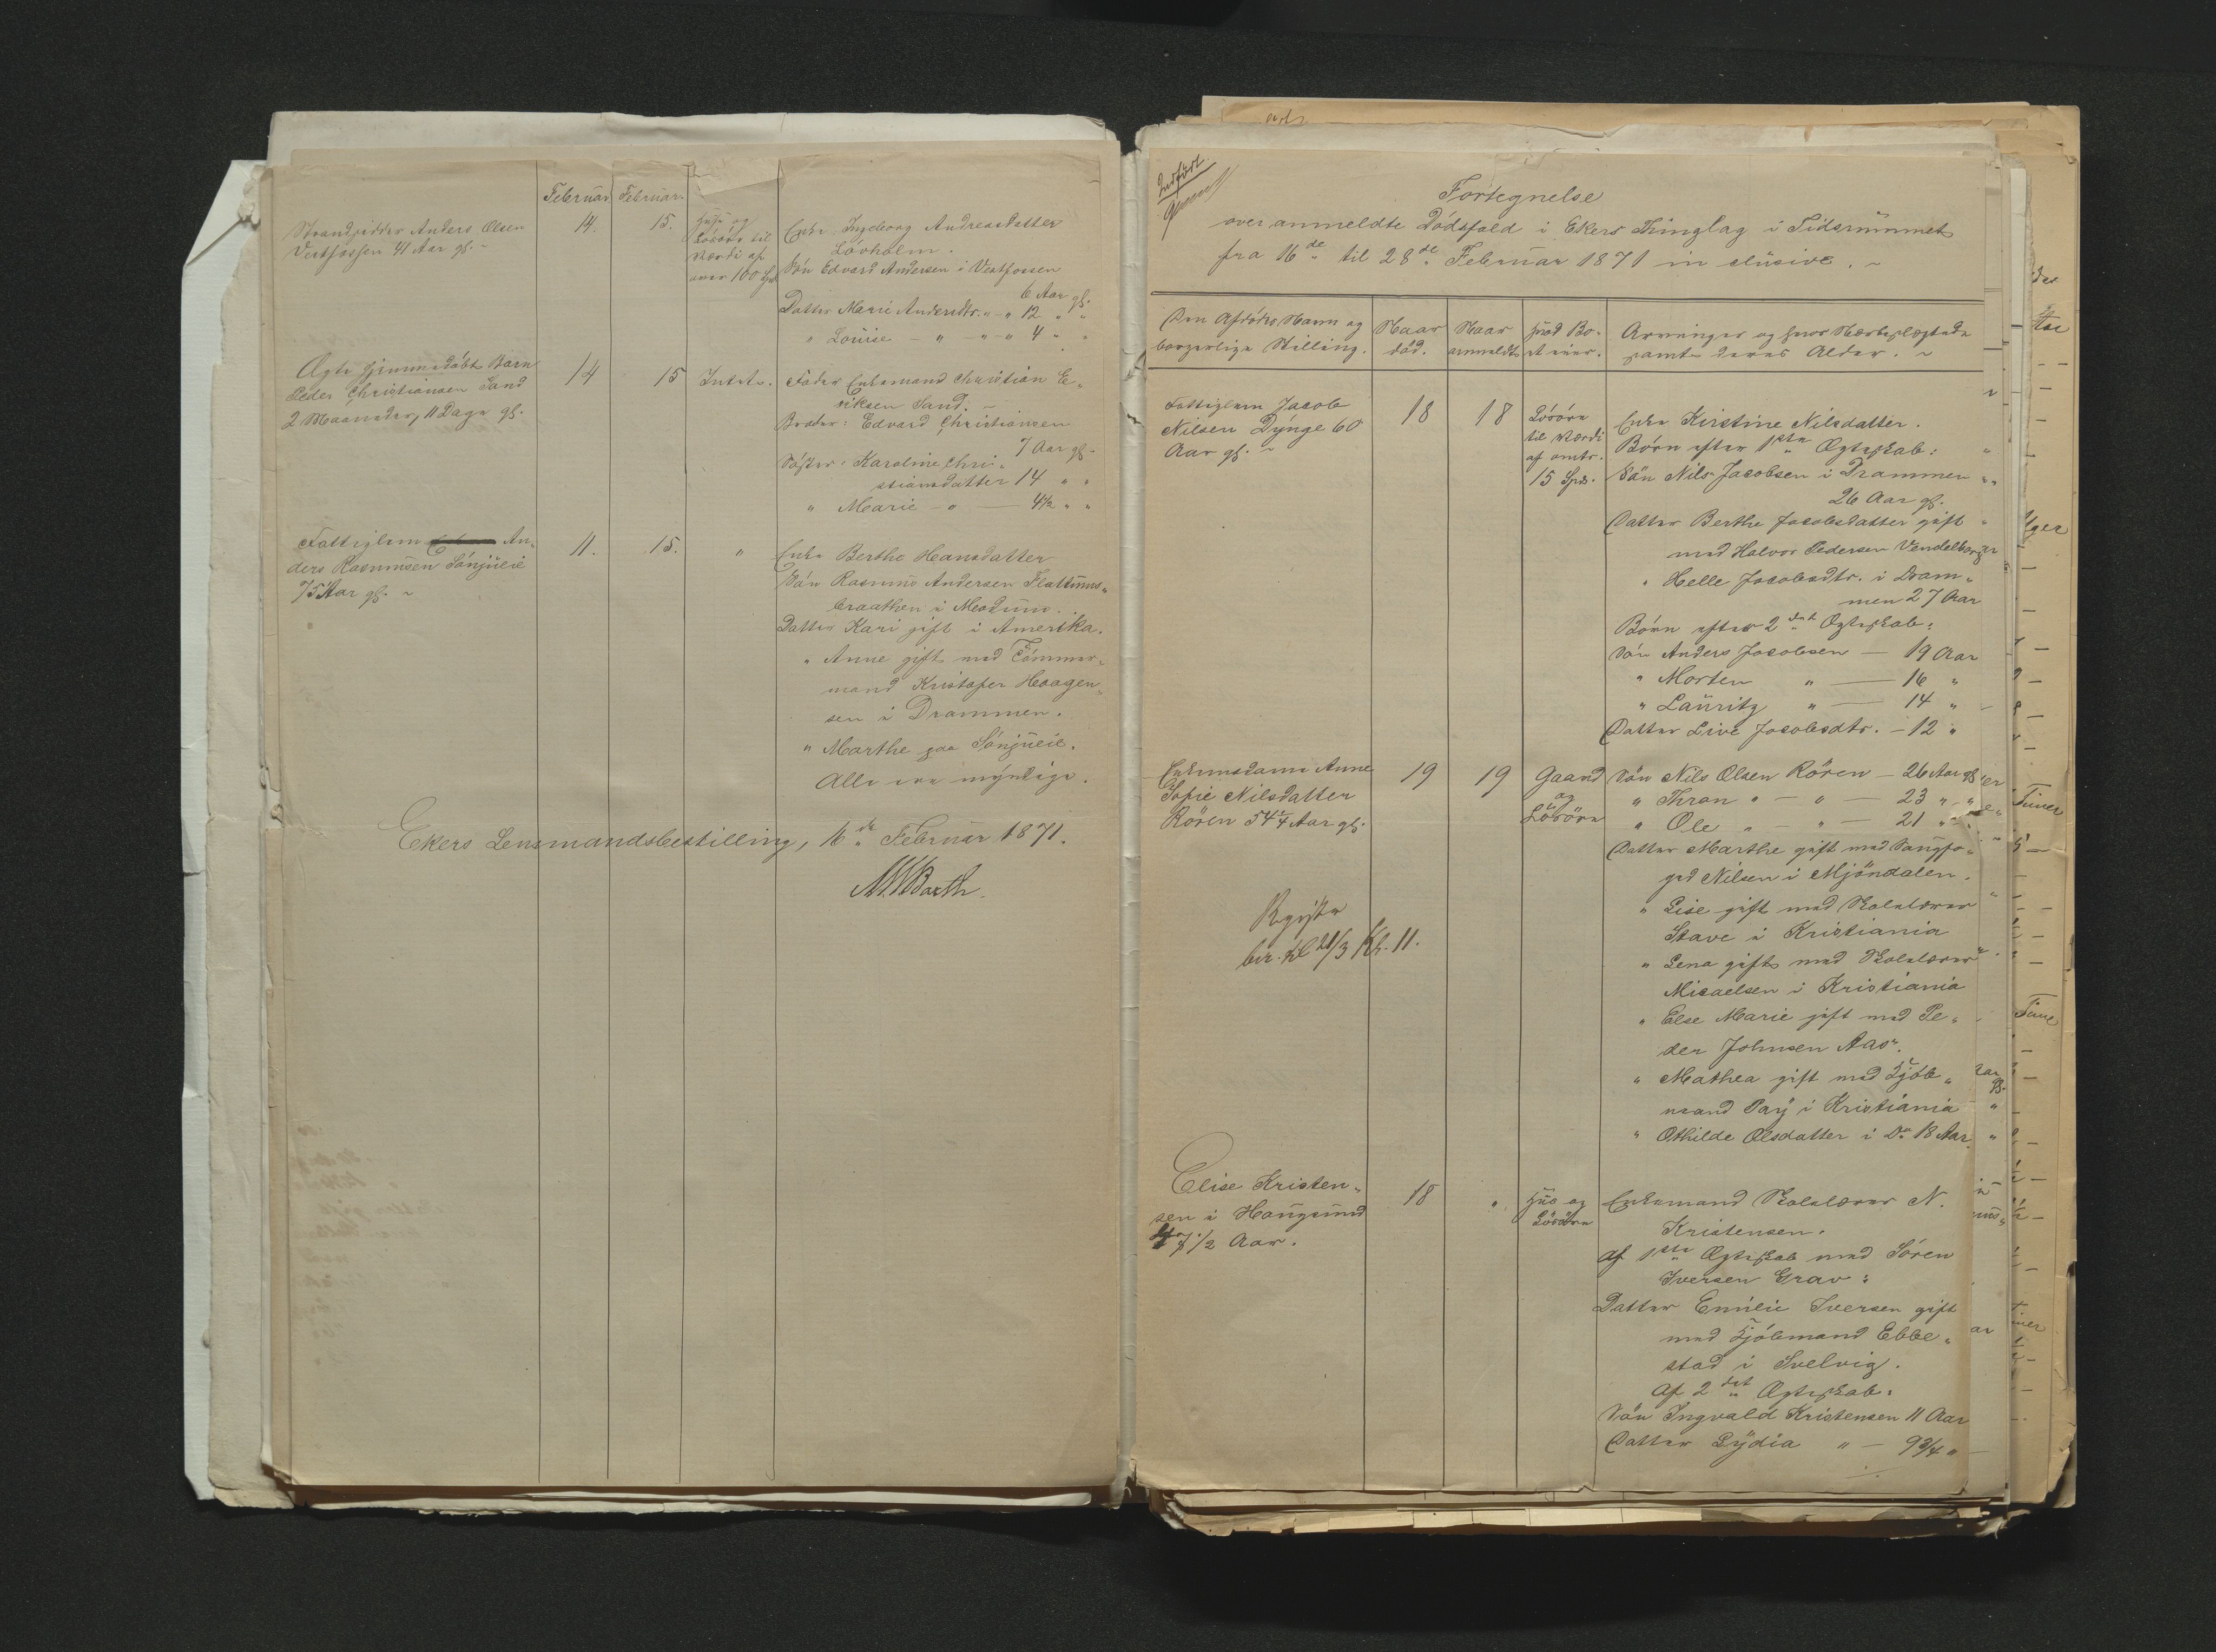 Februar Februar
Strandsidder Anders Olsen
Vestfossen 41 Aar gl.
14. 15.
Huus og
Lösöre til
Værdi af
over 100 Spd
Enke Ingeborg Andreasdatter
Lövholm.
Sön Edvard Andersen i Vestfossen
6 Aar gl.
Datter Marie Andersdtr. " - " 12 " "
" Louise - " - " - " 4 " "
Ægte hjemmedöbt Barn
Peder Christiansen Sand
2 Maaneder, 11 Dage gl.
14 15 Intet.
Fader Enkemand Christian E-
riksen Sand. -
Broder: Edvard Christiansen
7 Aar gl.
Söster: Karoline Chri-
stiansdatter 14 " "
" Marie - " - 4½ " "
Fattiglem An-
ders Rasmusen Sönjueie
75 Aar gl. ~
11. 15. "
Enke Berthe Hansdatter
Sön Rasmus Andersen Flattums-
braathen i Modum.
Datter Kari gift i Amerika.
" Anne gift med Tömmer-
mand Kristofer Haagen-
sen i Drammen.
" Marthe paa Sönjueie.
Alle ere myndige.
Ekers Lensmandsbestilling, 16de Februar 1871.
Barth.
Indfört.
Fortegnelse
over anmeldte Dödsfald i Ekers Thinglag i Tidsrummet
fra 16de til 28de Februar 1871 inclusive. ~
Den Afdödes Navn og
borgerlige Stilling.
Naar
död.
Naar
anmeldt.
Hvad Bo-
et eier.
Arvinger og hvor Nærbeslægtede
samt deres Alder. ~
Fattiglem Jacob
Nilsen Dynge 60
Aar gl. ~
18 18
Lösöre
til Værdi
af omtr.
15 Spd.
Enke Kirstine Nilsdatter.
Börn efter 1ste Ægteskab:
Sön Nils Jacobsen i Drammen
26 Aar gl.
Datter Berthe Jacobsdatter gift
med Halvor Pedersen Vendelborg
" Helle Jacobsdtr. i Dram-
men 27 Aar
Börn efter 2det Ægteskab:
Sön Anders Jacobsen - 19 Aar
" Morten " - 16 "
" Lauritz " - 14 "
Datter Live Jacobsdtr. - 12 "
Enkemadame Anne
Sofie Nilsdatter
Rören 54¼ Aar gl.
19 19
Gaard
og
Lösöre
Sön Nils Olsen Rören - 26 Aar gl
" Thran " - " - 23 " "
" Ole " - " - 21 "
Datter Marthe gift med Saugfo-
ged Nilsen i Mjöndalen.
" Lise gift med Skolelærer
Stave i Kristiania
" Lena gift med Skolelærer
Micaelsen i Kristiania
" Else Marie gift med Pe-
der Johnsen Aas.
" Mathea gift med Kjöb-
mand Pay i Kristiania
" Othilde Olsdatter i Do 18 Aar.
ber. til 21/3 Kl. 11.
Elise Kristen-
sen i Hougsund
47½ Aar.
18 "
Huus og
Lösöre
Enkemand Skolelærer N.
Kristensen.
Af 1ste Ægteskab med Sören
Iversen Grav:
Datter Emilie Iversen gift
med Kjöbmand Ebbe-
stad i Svelvig.
Af 2det Ægteskab:
Sön Ingvald Kristensen 11 Aar
Datter Lydia " - 9¾ "